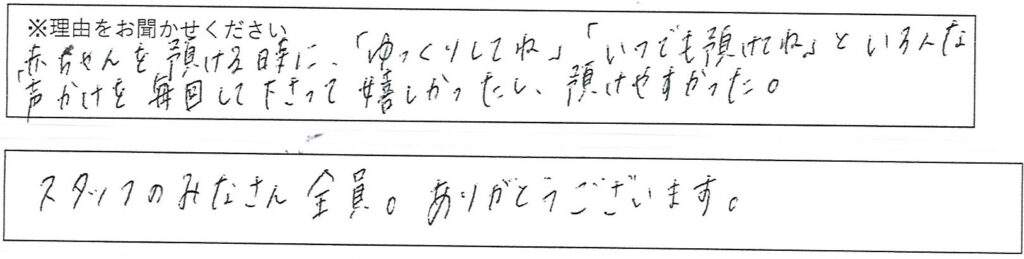 ※理由をお聞かせください
赤ちゃんを預ける時に、「ゆっくりしてね」「いつでも預けてね」といろんな
声かけを毎回して下さって嬉しかったし、預けやすかった。
スタッフのみなさん全員。ありがとうございます。